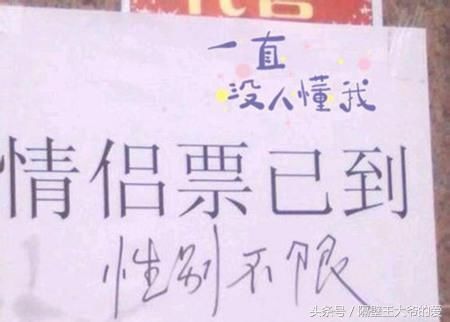 一直
没人懂我
情侣票已到
性别不限
头条号／隔壁王大爷的爱